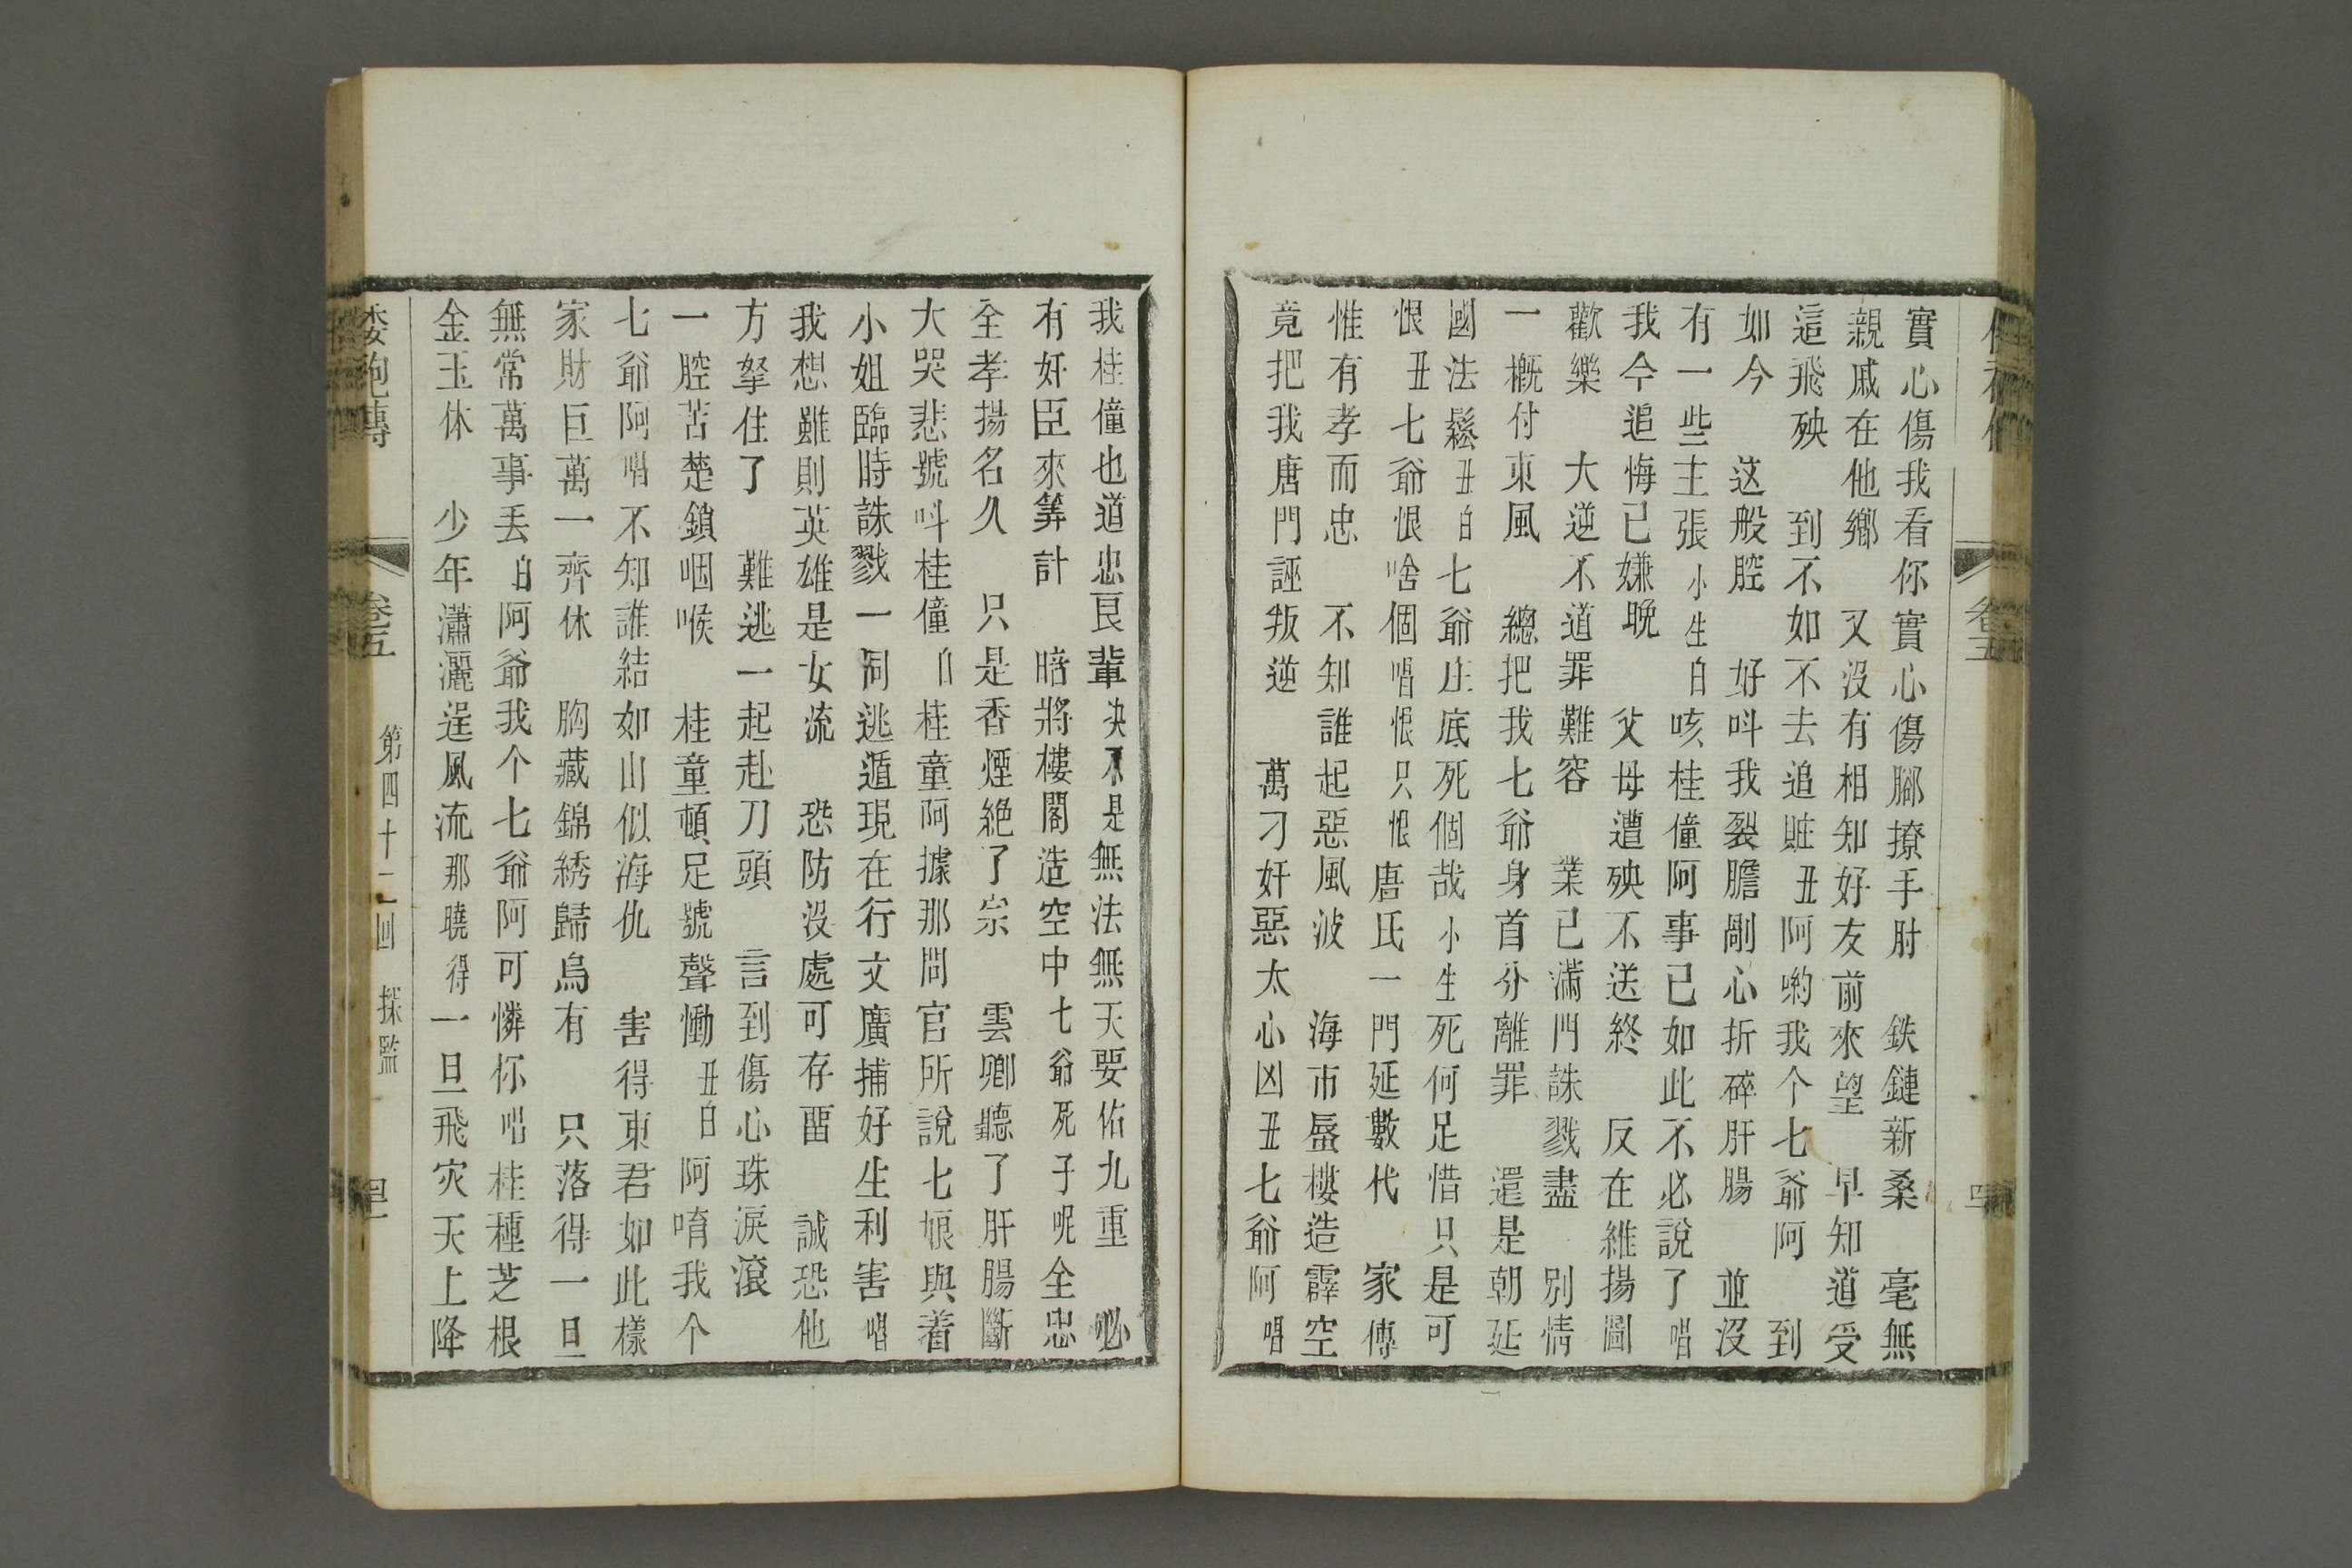 實心傷我看你實心傷腳撩手肘　鉄鏈新桑　毫無
親戚在他鄉　又没有相知好友前來望　早知道受
這飛殃　到不如不去追賍丑阿喲我个七爺阿　到
如今　这般腔　好呌我裂膽剮心折碎肝腸　並沒
有一些主張小生白咳桂僮阿事已如此不必說了唱
我今追悔已嫌晚　父母遭殃不送終　反在維揚圖
歡樂　大逆不道罪難容　業已滿門誅戮盡　別情
一概付東風　總把我七爺身首分離罪　還是朝廷
國法鬆丑白七爺庄底死個哉小生死何足惜只是可
恨丑七爺恨啥個唱恨只恨　唐氏一門延數代　家傳
惟有孝而忠　不知誰起惡風波　海市蜃樓造霹空
竟把我唐門誣叛逆　萬刁奸惡太心凶丑七爺阿唱
我桂僮也道忠良輩决不是無法無天要佑九重　必
有奸臣來筭計　暗將樓閣造空中七爺死子呢全忠
全孝揚名久　只是香煙絶了宗　雲卿聽了肝腸斷
大哭悲號呌桂僮白桂童阿據那問官所說七娘與着
小姐臨時誅戮一同逃遁現在行文廣捕好生利害唱
我想雖則英雄是女流　恐防沒處可存畱　誠恐他
方拏住了　難逃一起赴刀頭　言到傷心珠淚滾
一腔苦楚鎖咽喉　桂童頓足號聲慟丑白阿唷我个
七爺阿唱不知誰結如山似海仇　害得東君如此樣
家財巨萬一齊休　胸藏錦綉歸烏有　只落得一旦
無常萬事丟白阿爺我个七爺阿可憐你唱桂種芝根
金玉休　少年瀟灑逞風流那曉得一旦飛灾天上降
倭袍傳　卷五　第四十二回　探監